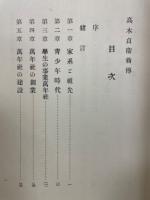 高木貞衞翁傳
目次
序
緒言
第一章 家系と祖先
第二章 青少年時代
第三章 畢生の事業萬年社
第四章 萬年社の創業
第五章 萬年社の建設